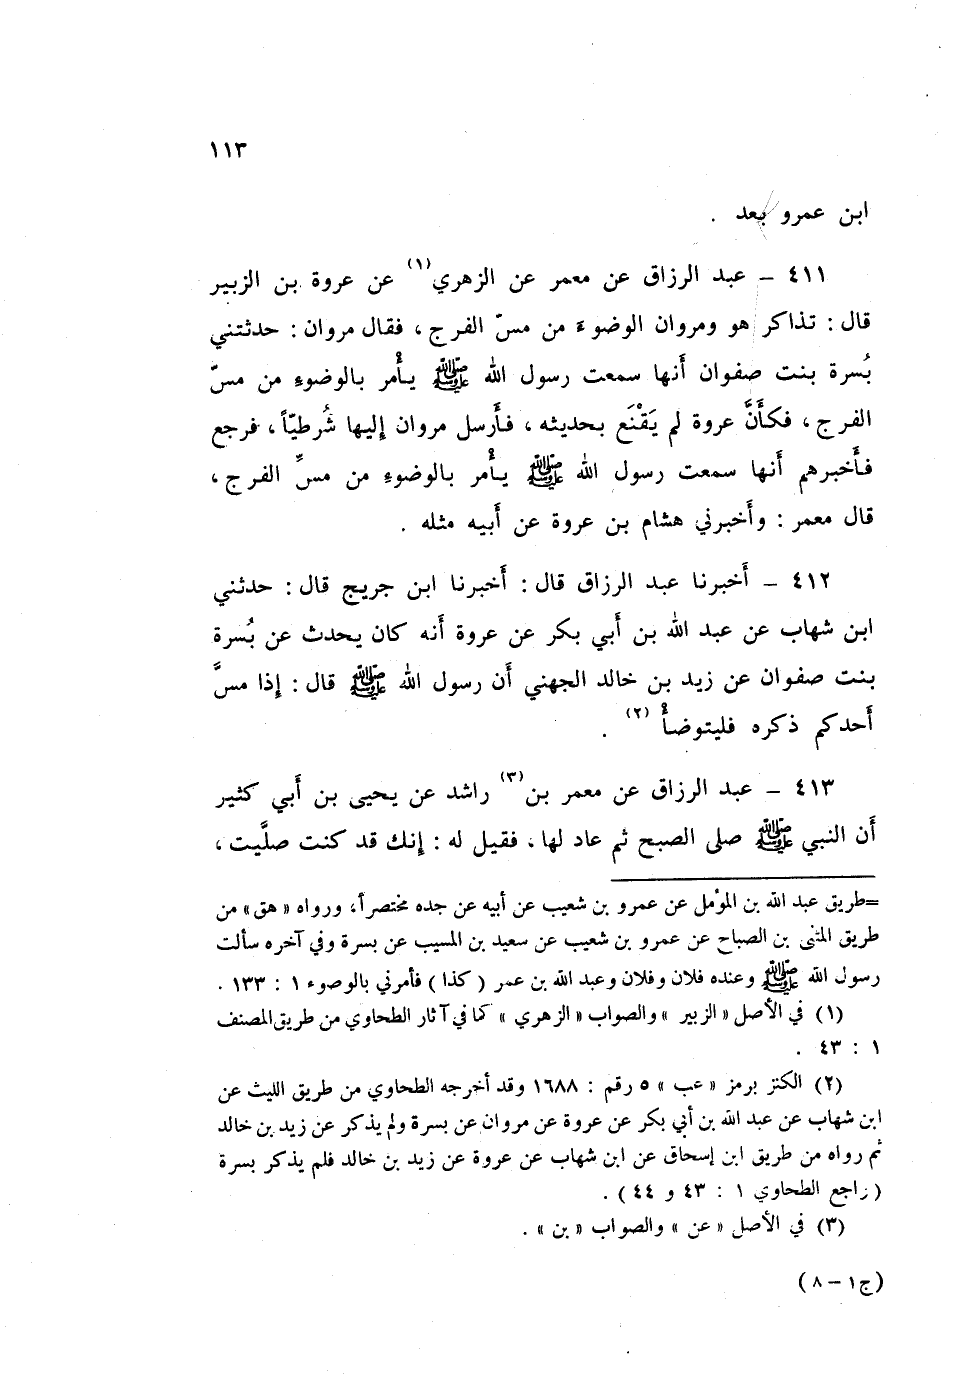 ١١٣
ابن عمرو بعد .
٤١١ – عبد الرزاق عن معمر عن الزهري(١) عن عروة بن الزبير
قال : تذاكر هو ومروان الوضوءَ من مسّ الفرج ، فقال مروان : حدثتني
بُسرة بنت صفوان أَنها سمعت رسول الله ﷺ يأْمر بالوضوءِ من مسّ
الفرج ، فكأَنَّ عروة لم يَقْنَع بحديثه ، فأَرسل مروان إِليها شُرطيّاً ، فرجع
فأَخبرهم أَنها سمعت رسول الله ﷺ يأْمر بالوضوءِ من مسِّ الفرج ،
قال معمر : وأَخبرني هشام بن عروة عن أَبيه مثله .
٤١٢ – أَخبرنا عبد الرزاق قال : أَخبرنا ابن جريج قال : حدثني
ابن شهاب عن عبد الله بن أَبي بكر عن عروة أَنه كان يحدث عن بُسرة
بنت صفوان عن زيد بن خالد الجهني أَن رسول الله ﷺ قال : إِذا مسَّ
أَحدكم ذكره فليتوضأْ (٢) .
٤١٣ – عبد الرزاق عن معمر بن(٣) راشد عن يحيى بن أَبي كثير
أَن النبي ﷺ صلى الصبح ثم عاد لها ، فقيل له : إِنك قد كنت صلَّيت ،
=طريق عبد الله بن المؤمل عن عمرو بن شعيب عن أبيه عن جده مختصراً، ورواه « هق » من
طريق المثنى بن الصباح عن عمرو بن شعيب عن سعيد بن المسيب عن بسرة وفي آخره سألت
رسول الله ﷺ وعنده فلان وفلان وعبد الله بن عمر ( كذا ) فأمرني بالوضوء ١ : ١٣٣ .
(١) في الأصل « الزبير » والصواب « الزهري » كما في آثار الطحاوي من طريق المصنف
١ : ٤٣ .
(٢) الكنز برمز « عب » ٥ رقم : ١٦٨٨ وقد أخرجه الطحاوي من طريق الليث عن
ابن شهاب عن عبد الله بن أبي بكر عن عروة عن مروان عن بسرة ولم يذكر عن زيد بن خالد
ثم رواه من طريق ابن إسحاق عن ابن شهاب عن عروة عن زيد بن خالد فلم يذكر بسرة
( راجع الطحاوي ١ : ٤٣ و ٤٤ ) .
(٣) في الأصل « عن » والصواب « بن » .
(ج١ – ٨)